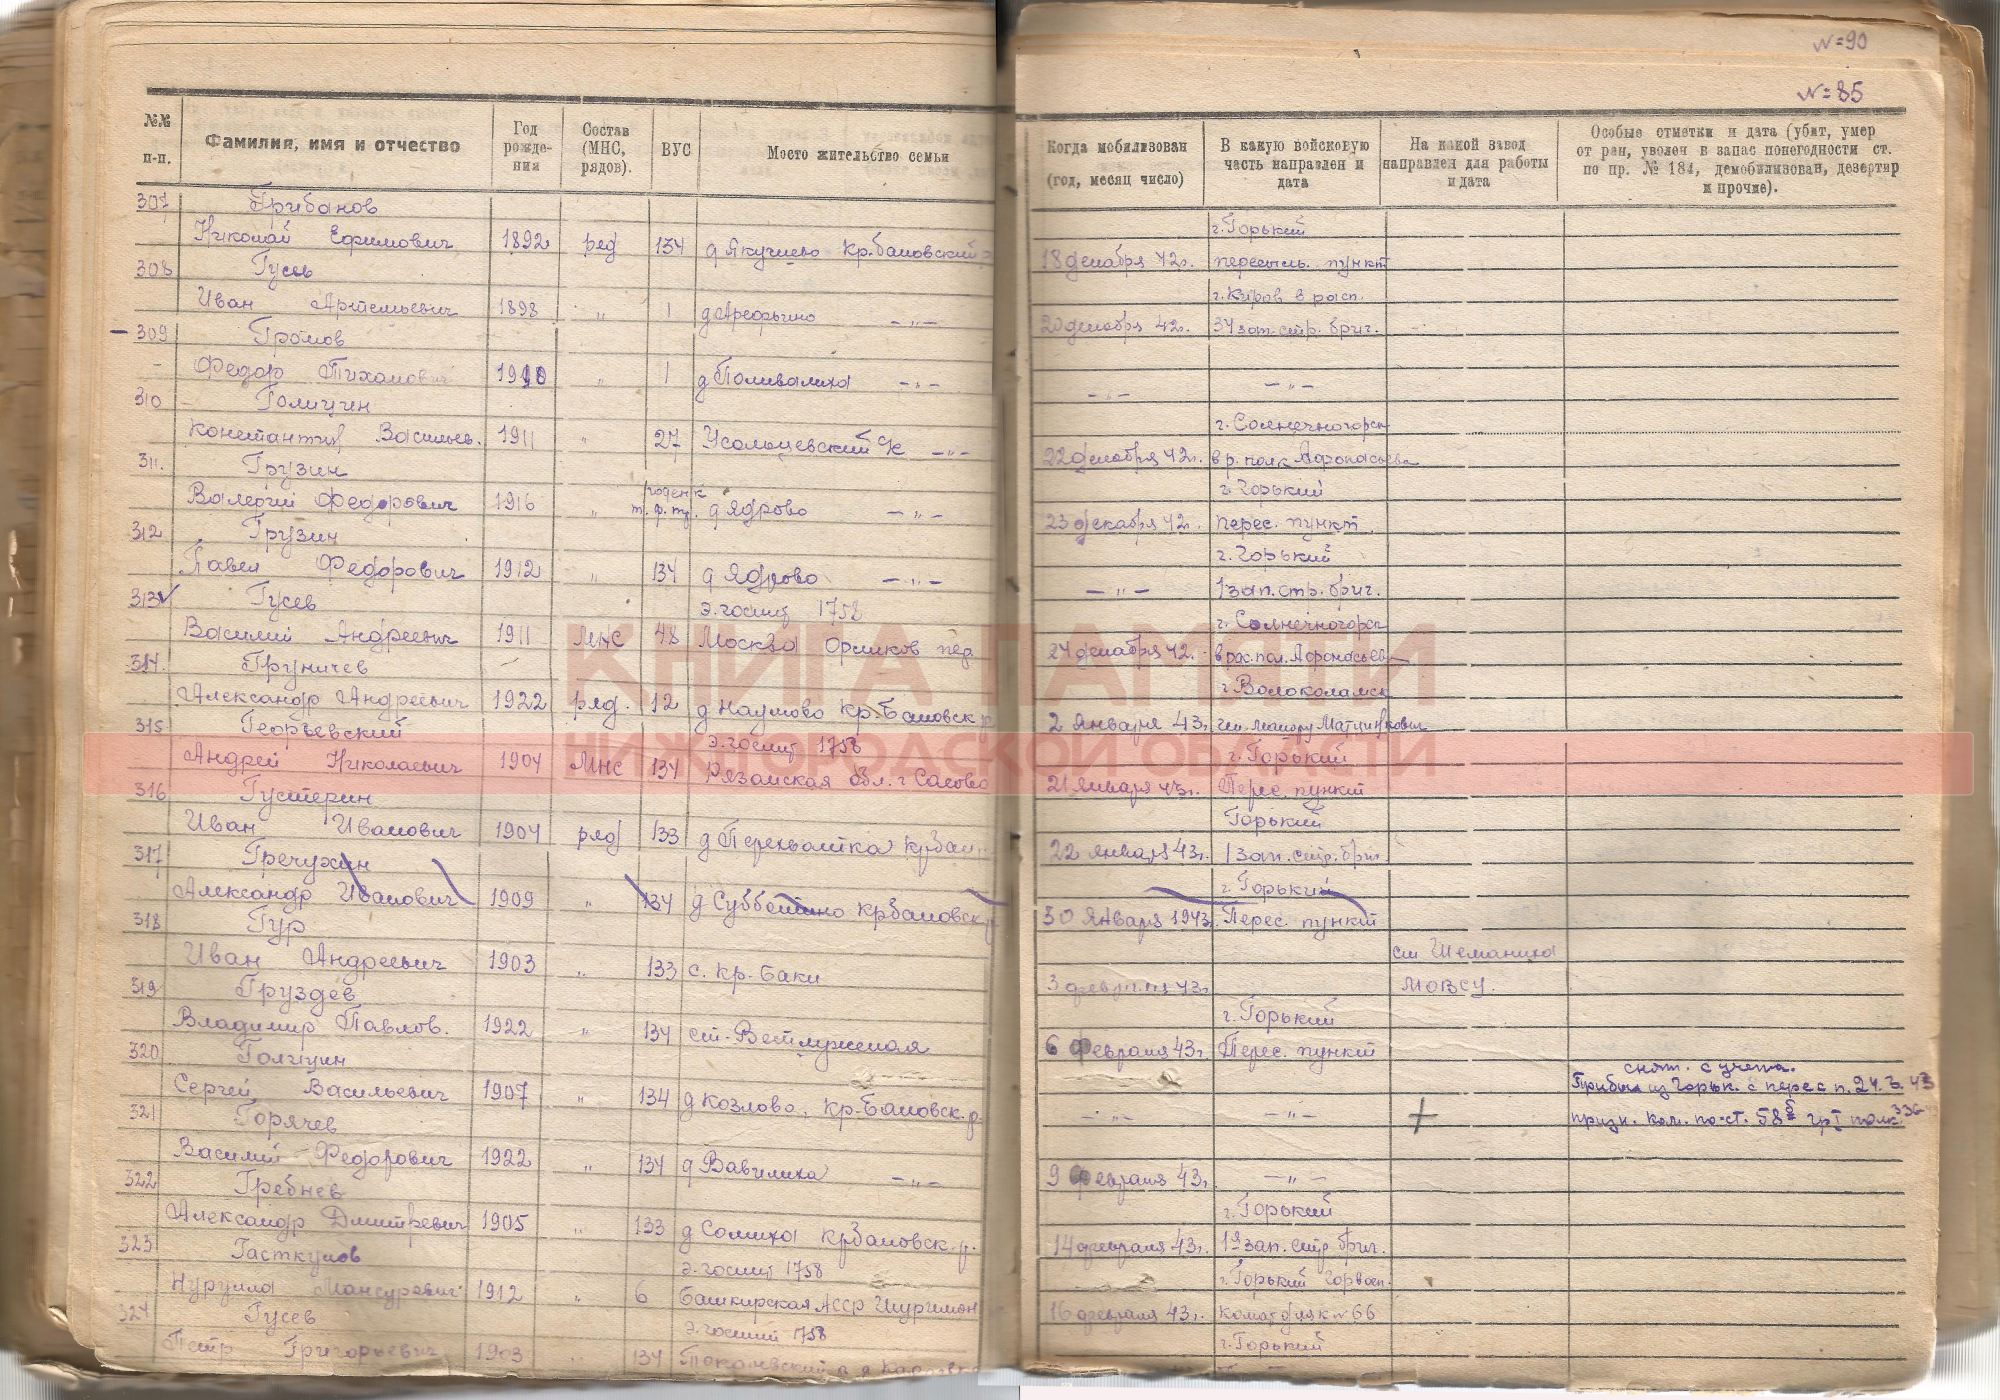 №=90
№=85
№№ п-п.
Фамилия, имя и отчество
Год рожде-ния
Состав (МНС, рядов).
ВУС
Место жительство семьи
Когда мобилизован (год, месяц число)
В какую войсковую часть направлен и дата
На какой завод направлен для работы и дата
Особые отметки и дата (убит, умер от ран, уволен в запас понегодности ст. по пр. № 184, демобилизован, дезертир и прочие).
307 Грибанов
г. Горький
Николай Ефимович 1892 ряд 134 д Якушево Кр.баковский 18 декабря 42г. пересыль. пункт
308 Гусев
г. Киров в расп.
Иван Артемьевич 1898 " 1 д Арефьино -"- 20 декабря 42г. 34 зап. стр. бриг.
309 Громов
Федор Тихонович 1910 " 1 д Поливалиха -"- -"- -"-
310 Голицин
г. Солнечногорск
Константин Васильев. 1911 " 27 Усольцевский с/с -"- 22 декабря 42г. в р. полк Афонасьева
311. Грузин
годен к г. Горький
Валерий Федорович 1916 " д Ядрово -"- 23 декабря 42г. перес. пункт.
312 Грузин
г. Горький
Павел Федорович 1912 " 134 д Ядрово -"- -"- 1 зап. стр. бриг.
313 Гусев
э. госпит 1758
г. Солнечногорск
Василий Андреевич 1911 МНС 48 Москва Орликов пер 24 декабря 42. в рас. пол. Афонасьев
314. Груничев
г Волоколамск
Александр Андреевич 1922 ряд. 12 д Наумово Кр.баковск р 2 января 43г. ген. майору
315 Георьевский
э. госпит 1758
г. Горький
Андрей Николаевич 1904 МНС 134 Рязанская обл. г Сасово 21 января 43г. Перес. пункт
316 Густерин
Горький
Иван Иванович 1904 ряд 133 д Перехватка крбак 22 января 43г. 1 зап. стр. бриг.
317 Гречухин
г. Горький
Александр Иванович 1909 " 134 д Субботино крбаковск р 30 января 1943 Перес. пункт
318 Гур
ст Шеманиха
Иван Андреевич 1903 " 133 с. кр-баки 3 февраля 43г. МОВСУ.
319 Груздев
г. Горький
Владимир Павлов. 1922 " 134 ст. Ветлужская 6 февраля 43г. Перес. пункт
320 Голицин
снят. с учета.
Прибыл из Горьк. с перес п. 24.3.43
Сергей Васильевич 1907 " 134 д Козлово, кр-баковск. р. -"- -"- +
призн. ком. по ст. 58б гр I
321 Горячев
Василий Федорович 1922 " 134 д Вавилиха -"- 9 февраля 43г. -"-
322 Гребнев
г. Горький
Александр Дмитревич 1905 " 133 д Сомиха крбаковск. р. 14 февраля 43г. 1я зап. стр бриг.
323 Гасткулов
э. госпит 1758
г. Горький
Нурулла Мансурович 1912 " 6 башкирская АССР 16 февраля 43г. № 66
324 Гусев
э. госпит 1758
г. Горький
Петр Григорьевич 1903 134
КНИГА ПАМЯТИ
НИЖЕГОРОДСКОЙ ОБЛАСТИ